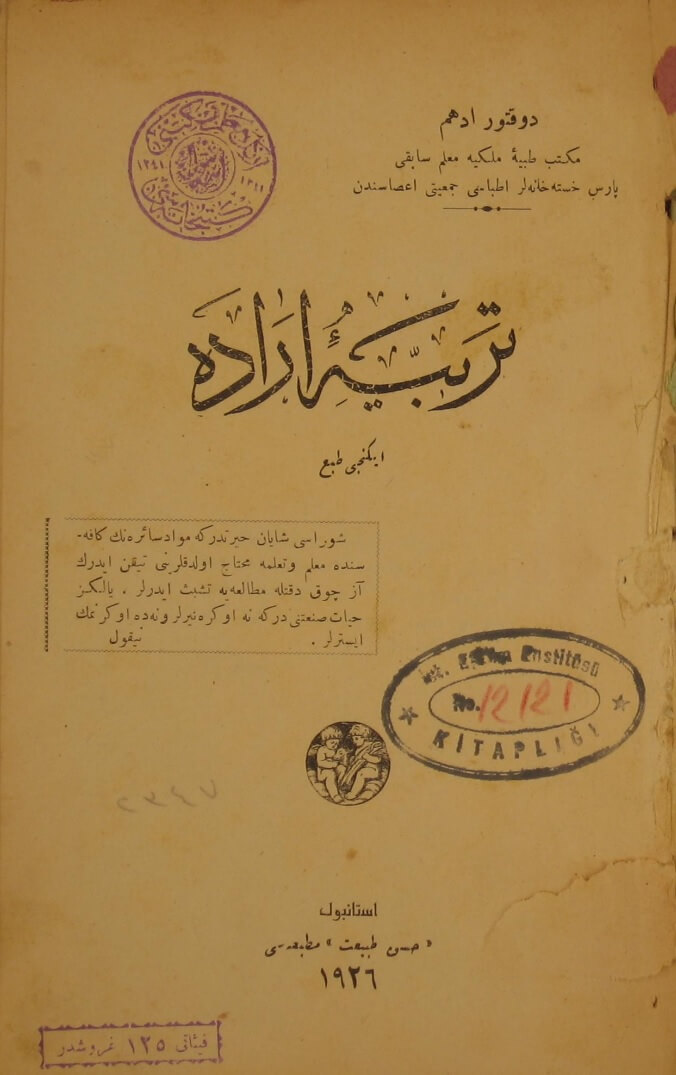 دوقتور ادهم
مكتب طبيهٔ ملكيه معلم سابقى
پارس خسته‌خانه‌لر اطباسى جمعيتى اعضاسندن
تربيهٔ اراده
ايكنجى طبع
شوراسى شايان حيرتدركه مواد سائره‌نك كافه-
سنده معلم وتعلمه محتاج اولدقلرينى تيقن ايدرك
آز چوق دقتله مطالعه‌يه تشبث ايدرلر . يالكز
حيات صنعتنى دركه نه اوكره‌نيرلر ونه‌ده اوكرنمك
ايسترلر . نيقول
İst. Enstitüsü
No. 12121
KİTAPLIĞI
استانبول
« حسن طبيعت » مطبعه‌سى
١٩٢٦
فيئاتى ١٢٥ غروشدر